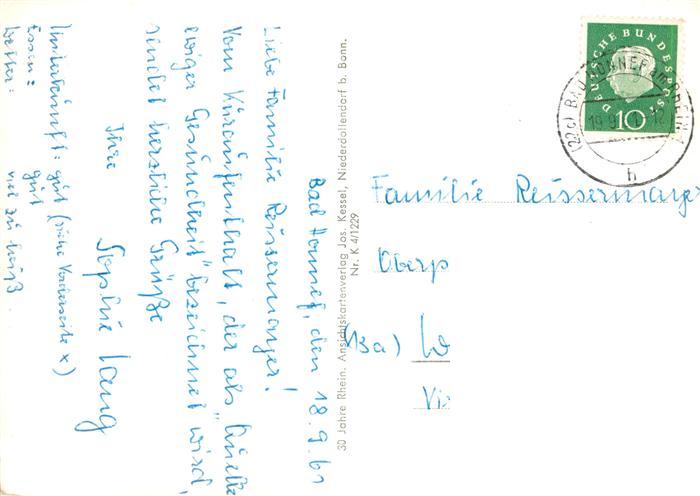 Bad Honnef, den 18.9.61
Liebe Familie Reissermayer!
Vom Kuraufenthalt, der als "Quelle
ewiger Gesundheit" bezeichnet wird,
sendet herzliche Grüße
Ihre
Sophie Lang
Unterkunft: gut (siehe Vorderseite x)
Essen: gut
Wetter: viel zu heiß.
30 Jahre Rhein. Ansichtskartenverlag Jos. Kessel, Niederdollendorf b. Bonn.
Nr. K 4/1229
DEUTSCHE BUNDESPOST
10
(22c) BAD HONNEF am RHEIN 1
19.9. 61.-12
h
Familie Reissermayer
Oberp
(13a) W